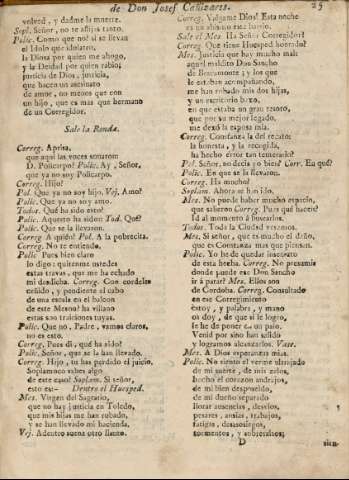 de Don Josef Cañizares. 25
volved, y dadme la muerte.
Sopl. Señor, no se aflija tanto.
Polic. Como que no? si se llevan
el Idolo que idolatro,
la Diosa por quien me ahogo,
y la Deidad por quien rabio;
justicia de Dios, justicia,
que hacen un asesinato
de amor, no menos que con
un hijo, que es mas que hermano
de un Corregidor.
Sale la Ronda.
Correg. Aprisa,
que aqui las voces sonaron:
D. Policarpo? Polic. Ay, Señor,
que ya no soy Policarpo.
Correg. Hijo?
Pol. Que ya no soy hijo. Vej. Amo?
Polic. Que ya no soy amo.
Todos. Qué ha sido esto?
Polic. Aquesto ha sido: Tod. Qué?
Polic. Que se la llevaron.
Correg. A quién? Pol. A la pobrecita.
Correg. No te entiendo.
Polic. Pues bien claro
lo digo: quitenme ustedes
estas travas, que me ha echado
mi desdicha. Correg. Con cordeles
ceñido, y pendiente al cabo
de una escala en el balcon
de este Meson? ha villano
estas son traiciones tuyas.
Polic. Que no, Padre, vamos claros,
no es esto.
Correg. Pues di, qué ha sido?
Polic. Señor, que se la han llevado.
Correg. Hijo, tu has perdido el juicio.
Soplamoco sabes algo
de este caso? Soplam. Sí señor,
esto es:- Dentro el Huesped.
Mes. Virgen del Sagrario,
que no hay justicia en Toledo,
que mis hijas me han robado,
y se han llevado mi hacienda.
Vej. Adentro suena otro llanto.
Correg. Valgame Dios! Esta noche
es un abismo este barrio.
Sale el Mes. Ha Señor Corregidor!
Correg. Que tiene Huesped honrado?
Mes. Justicia que hay mucho mal:
aquel maldito Don Sancho
de Bracamonte; y los que
le estaban acompañando,
me han robado mis dos hijas,
y un escritorio baxo,
en que estaba un gran tesoro,
que por su mejor legado,
me dexó la esposa mia.
Correg. Constanza la del recato:
la honesta, y la recogida,
ha hecho error tan temerario?
Pol. Señor, no decia yo bien? Corr. En qué?
Polic. En que se la llevaron.
Correg. Ha mucho?
Soplam. Ahora se han ido.
Mes. No puede haber mucho espacio,
que salieron Correg. Pues qué haceis?
Id al momento á buscarlos.
Todos. Toda la Ciudad
Mes. Sí señor, que es mucho el daño,
que es Constanza mas que piensan.
Polic. Yo he de quedar
de esta hecha. Correg. No presumis
donde puede ese Don Sancho
ir á parar? Mes. Ellos son
de Cordoba. Correg. Consultado
en ese Corregimiento
estoy, y palabra, y mano
os doy, de que si le logro,
se he de poner en un palo.
Venid por sino han salido
y logramos alcanzarlos. Vase.
Mes. A Dios esperanzas mias.
Polic. No siento el verme ultrajado
de mi suerte, de mis zelos,
hecho el corazon andrajos,
de mi bien despreciado,
de mi dueño separado
llorar ausencias, desvelos,
pesares, ansias, trabajos,
fatigas, desasosiegos,
tormentos, y sobresaltos;
D sien-